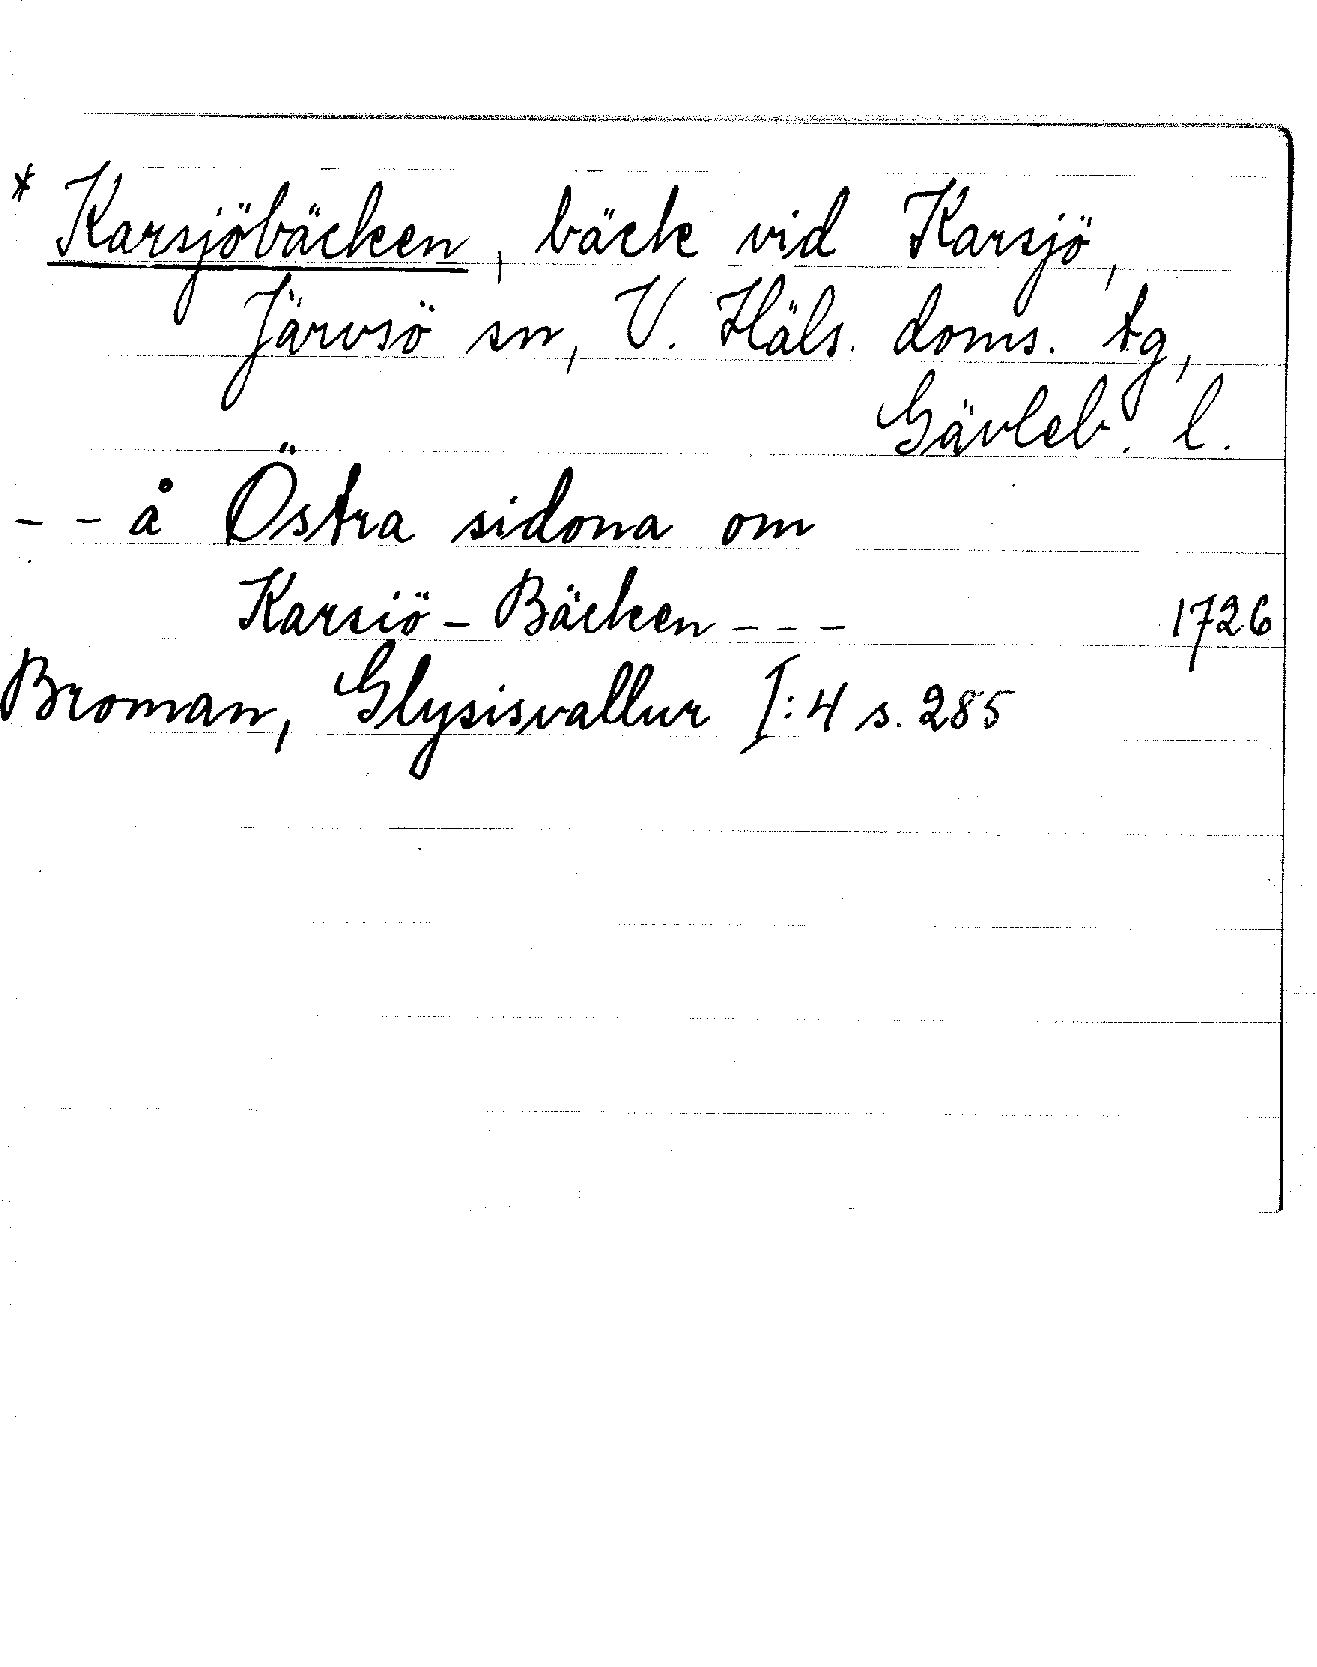 * Karsjöbäcken, bäck vid Karsjö,
Järvsö sn, V. Häls. doms. tg,
Gävleb. l.
- - å Östra sidona om
Karsiö-Bäcken - - - 1726
Broman, Glysisvallur I:4 s. 285